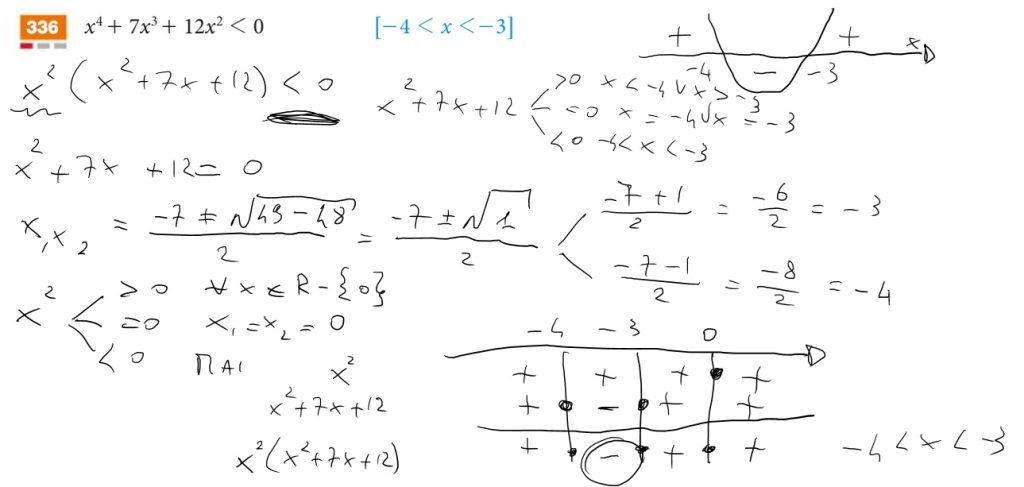 336 x⁴ + 7x³ + 12x² < 0 [−4 < x < −3]
+ − + x
−4 −3
x² (x² + 7x + 12) < 0
x² + 7x + 12
>0 x < −4 ∨ x > −3
=0 x = −4 ∨ x = −3
<0 −4 < x < −3
x² + 7x + 12 = 0
x₁,x₂ = (−7 ± √(49 − 48))/2 = (−7 ± √1)/2
(−7 + 1)/2 = −6/2 = −3
(−7 − 1)/2 = −8/2 = −4
x²
>0 ∀x ∈ R − {0}
=0 x₁ = x₂ = 0
<0 MAI
−4 −3 0
x² + + + +
x² + 7x + 12 + − + +
x² (x² + 7x + 12) + − + +
−4 < x < −3